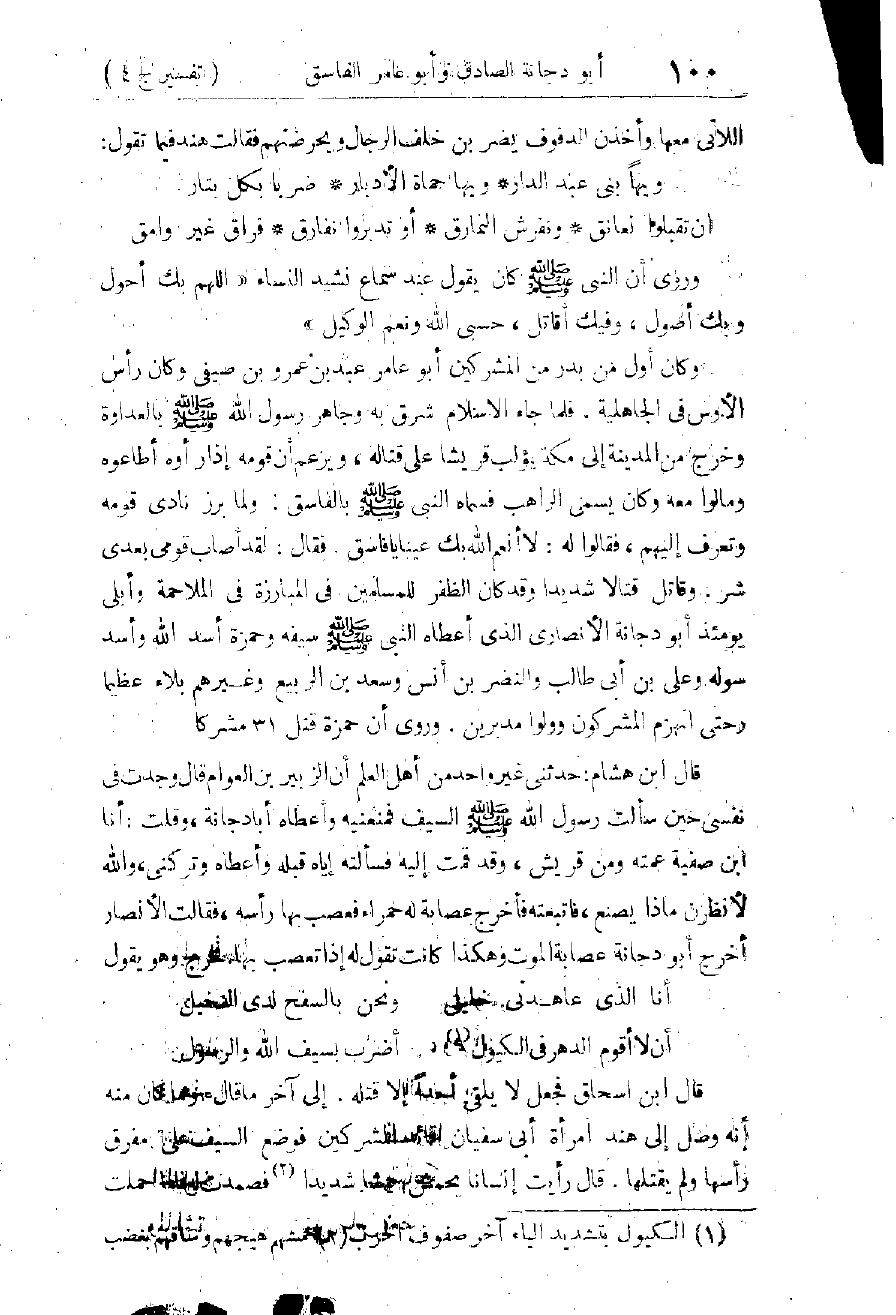 ١٠٠ أبو دجانة الصادق وأبو عامر الفاسق (تفسير ج ٤)
اللاتى معها وأخذن الدفوف يضر بن خلف الرجال ويحرضنهم فقالت هند فيما تقول:
ويهاً بنى عبد الدار* ويها حماة الأدبار* ضربا بكل بتار
ان تقبلوا نعانق * ونفرش النمارق * أو تدبروا نفارق * فراق غير وامق
وروى أن النبى ﷺ كان يقول عند سماع نشيد النساء « اللهم بك أحول
وبك أصول ، وفيك أقاتل ، حسبى الله ونعم الوكيل »
وكان أول من بدر من المشركين أبو عامر عبد بن عمرو بن صيفى وكان رأس
الأوس فى الجاهلية . فلما جاء الاسلام شرق به وجاهر رسول الله ﷺ بالعداوة
وخرج من المدينة إلى مكة يؤلب قريشا على قتاله ، ويزعم أن قومه إذار أوه أطاعوه
ومالوا معه وكان يسمى الراهب فسماه النبى ﷺ بالفاسق : ولما برز نادى قومه
وتعرف إليهم ، فقالوا له : لا أنعم الله بك عينا يافاسق . فقال : لقد أصاب قومى بعدى
شر . وقاتل قتالا شديدا وقد كان الظفر للمسلمين فى المبارزة فى الملاحمة وأبلى
يومئذ أبو دجانة الأنصارى الذى أعطاه النبى ﷺ سيفه وحمزة أسد الله وأسد
سوله وعلى بن أبى طالب والنضر بن أنس وسعد بن الربيع وغيرهم بلاء عظيما
حتى انهزم المشركون وولوا مدبرين . وروى أن حمزة قتل ٣١ مشركا
قال ابن هشام : حدثنى غير واحد من أهل العلم أن الزبير بن العوام قال وجدت فى
نفسى حين سألت رسول الله ﷺ السيف فمنعنيه وأعطاه أبا دجانة ، وقلت : أنا
ابن صفية عمته ومن قريش ، وقد قمت إليه فسألته إياه قبله وأعطاه وتركنى ، والله
لأنظرن ماذا يصنع ، فاتبعته فأخرج عصابة له حمراء فعصب بها رأسه ، فقالت الأنصار
أخرج أبو دجانة عصابة الموت وهكذا كانت تقول له إذا تعصب بها وهو يقول
أنا الذى عاهدنى خليلى ونحن بالسفح لدى النخيل
أن لا أقوم الدهر فى الكيول (١) أضرب بسيف الله والرسول
قال ابن اسحاق فجعل لا يلقى أحداً إلا قتله . إلى آخر ما قال كان منه
أنه وصل إلى هند امرأة أبى سفيان المشركين فوضع السيف على مفرق
رأسها ولم يقتلها . قال رأيت إنسانا شديدا (٢) فصمدت
(١) الكيول بتشديد الياء آخر صفوف الحرب (٢) هيجهم وساقهم بغضب